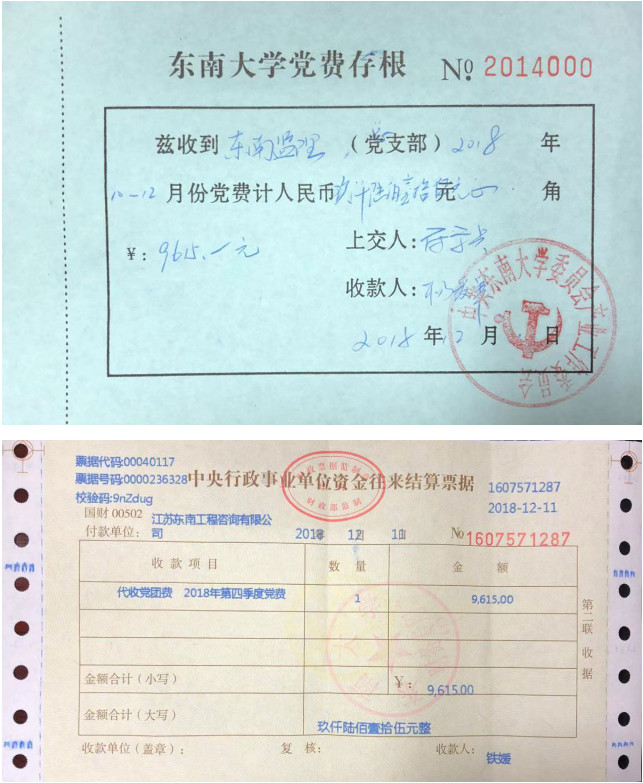 东南大学党费存根 № 2014000
兹收到 东南监理 (党支部) 2018 年
10-12 月份党费计人民币玖仟陆佰壹拾伍元 角
¥: 9615.- 元 上交人:
收款人:
2018 年 12 月 日
东南大学委员会产业工作委员会
票据代码:00040117
票据号码:0000236328 中央行政事业单位资金往来结算票据 1607571287
校验码:9nZdug 2018-12-11
国财 00502
付款单位: 江苏东南工程咨询有限公司 2018 12 11 № 1607571287
收款项目 数量 金额
代收党团费 2018年第四季度党费 1 9,615.00
第二联 收据
金额合计(小写) ¥: 9,615.00
金额合计(大写) 玖仟陆佰壹拾伍元整
收款单位(盖章): 复核: 收款人: 铁媛